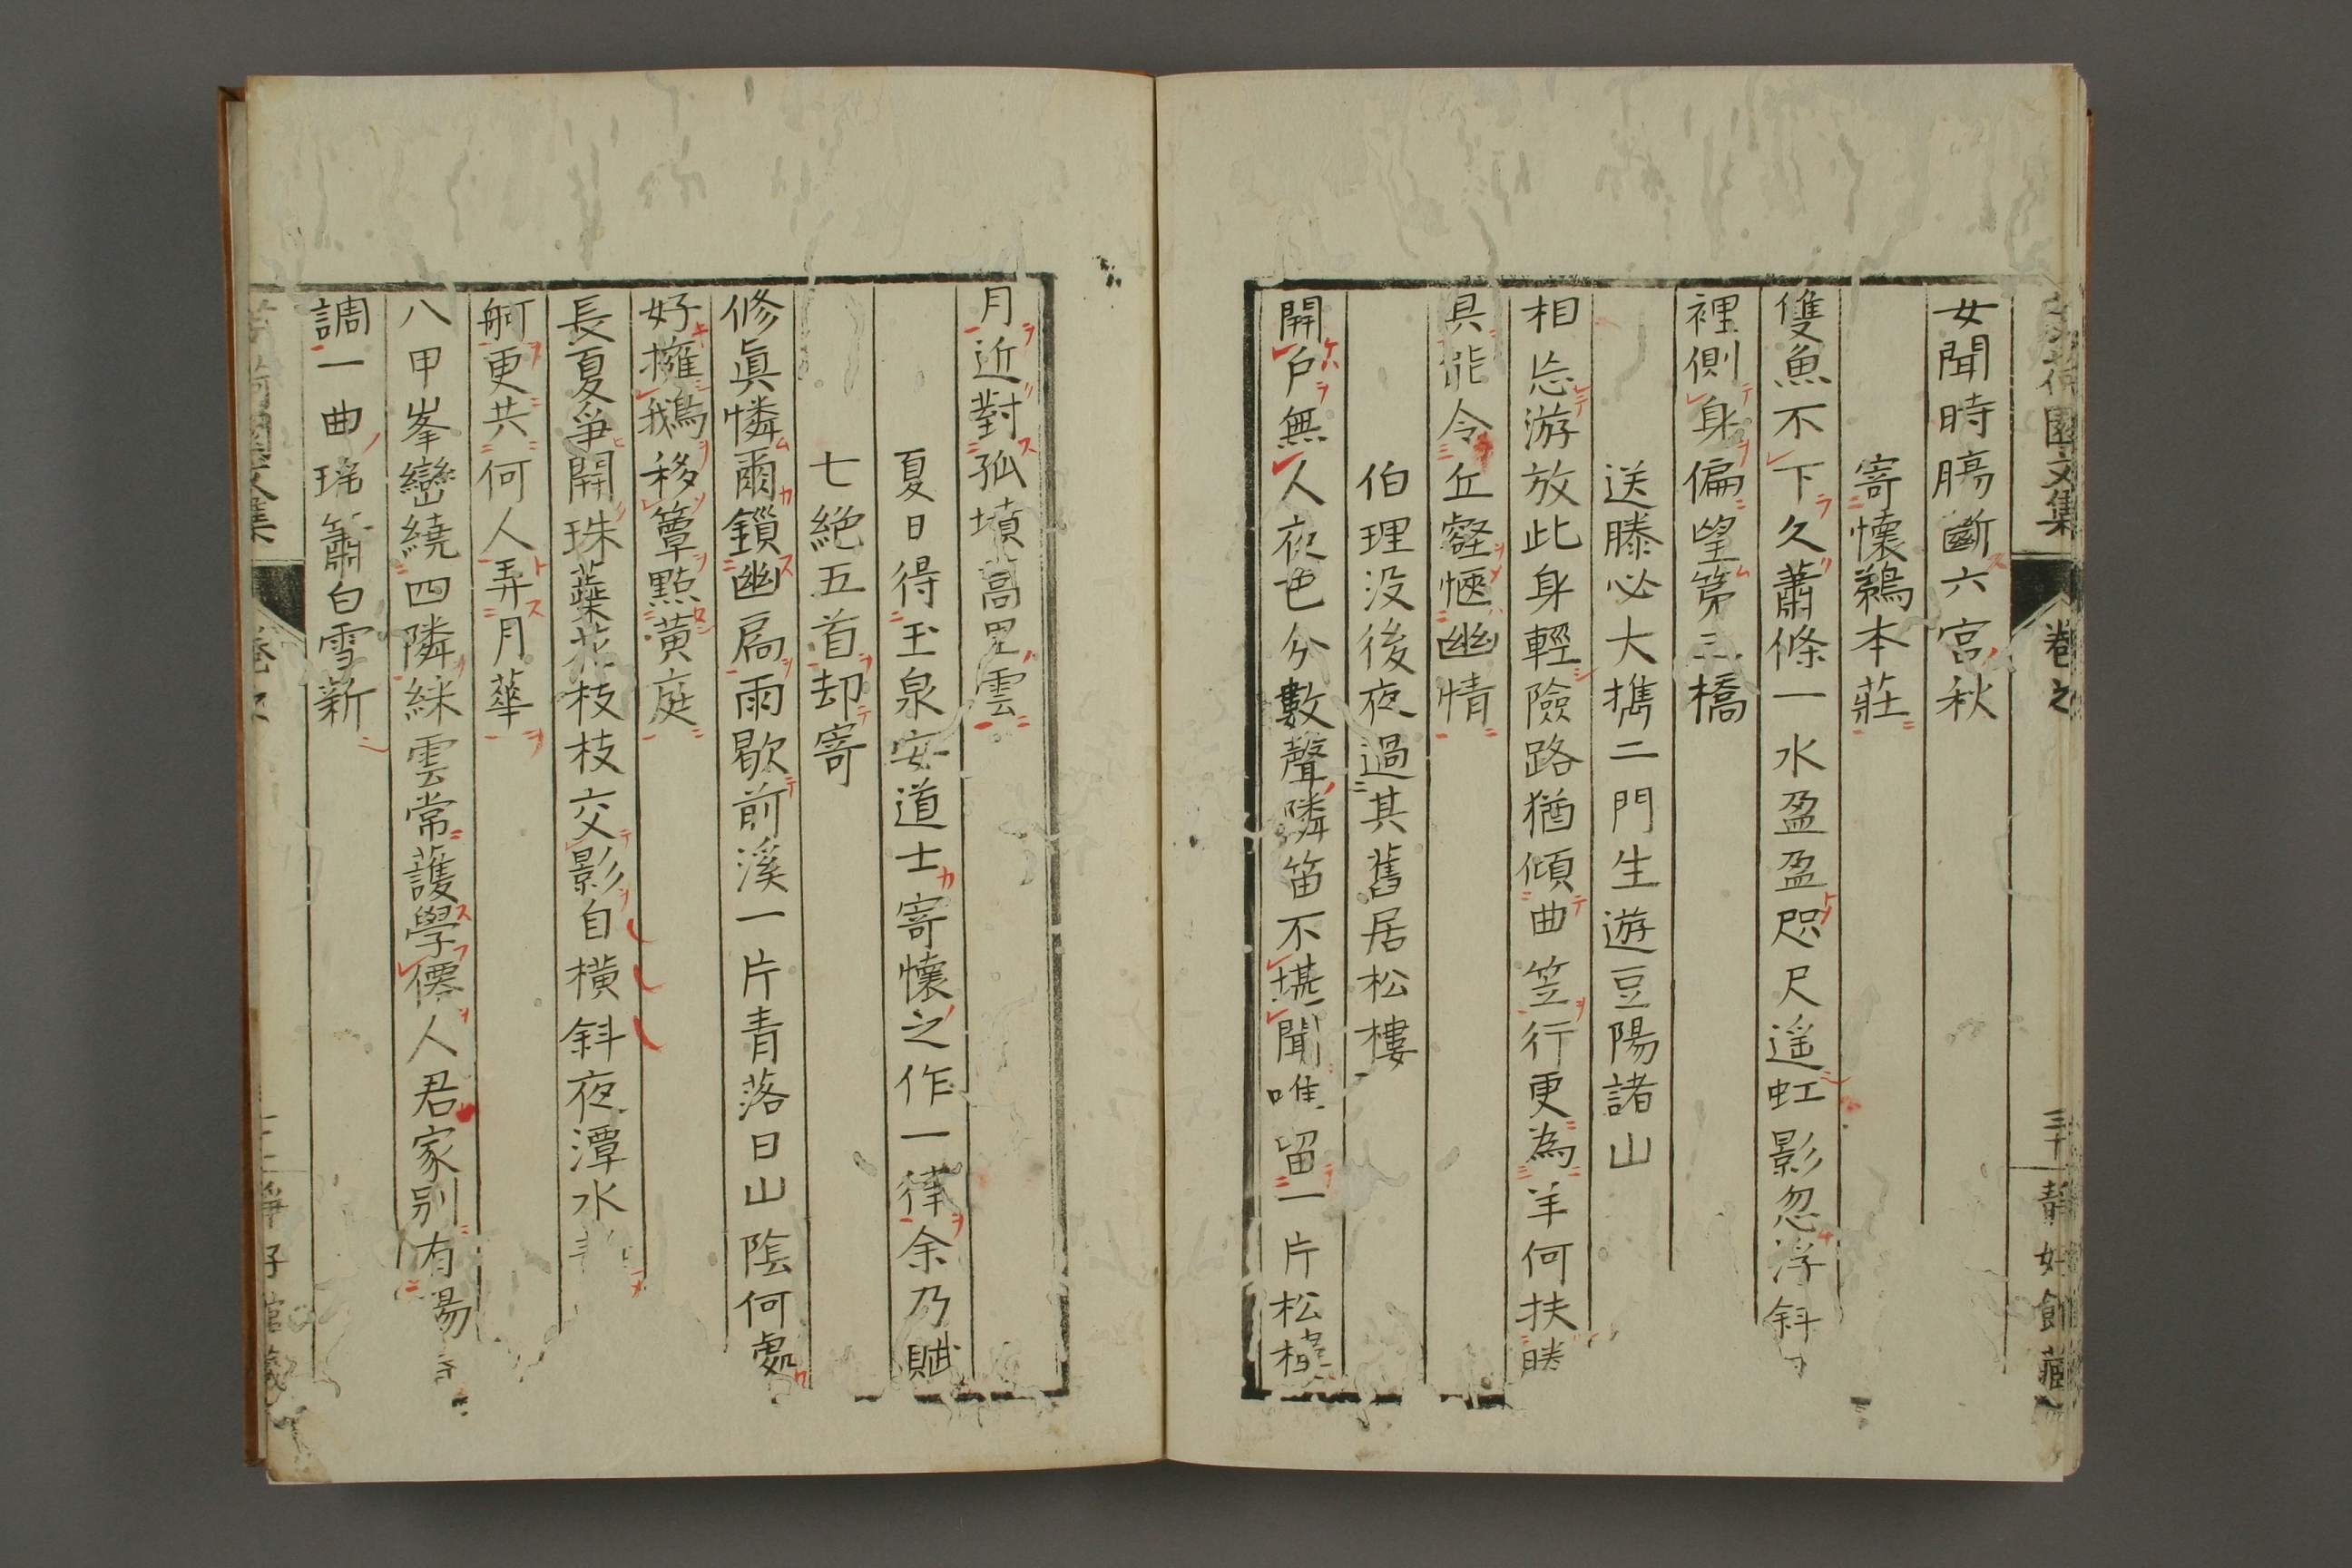 園文集 卷之 三十 靜好館藏
女聞時腸斷六宮秋
寄懷鵜本莊
雙魚不下久蕭條一水盈盈咫尺遥虹影忽浮斜日
裡側身偏望第三橋
送滕必大攜二門生遊豆陽諸山
相忘游放此身輕險路猶傾曲笠行更為羊何扶勝
具能令丘壑愜幽情
伯理没後夜過其舊居松樓
開戶無人夜色分數聲隣笛不堪聞唯留一片松樓
月近對孤墳蒿里雲
夏日得玉泉安道士寄懷之作一律余乃賦
七絶五首却寄
修眞憐爾鎖幽扃雨歇前溪一片青落日山陰何處
好擁鵝移簟點黃庭
長夏爭開珠蘂花枝枝交影自橫斜夜潭水
舸更共何人弄月華
八甲峯巒繞四隣綵雲常護學僊人君家別有陽
調一曲瑤簫白雪新